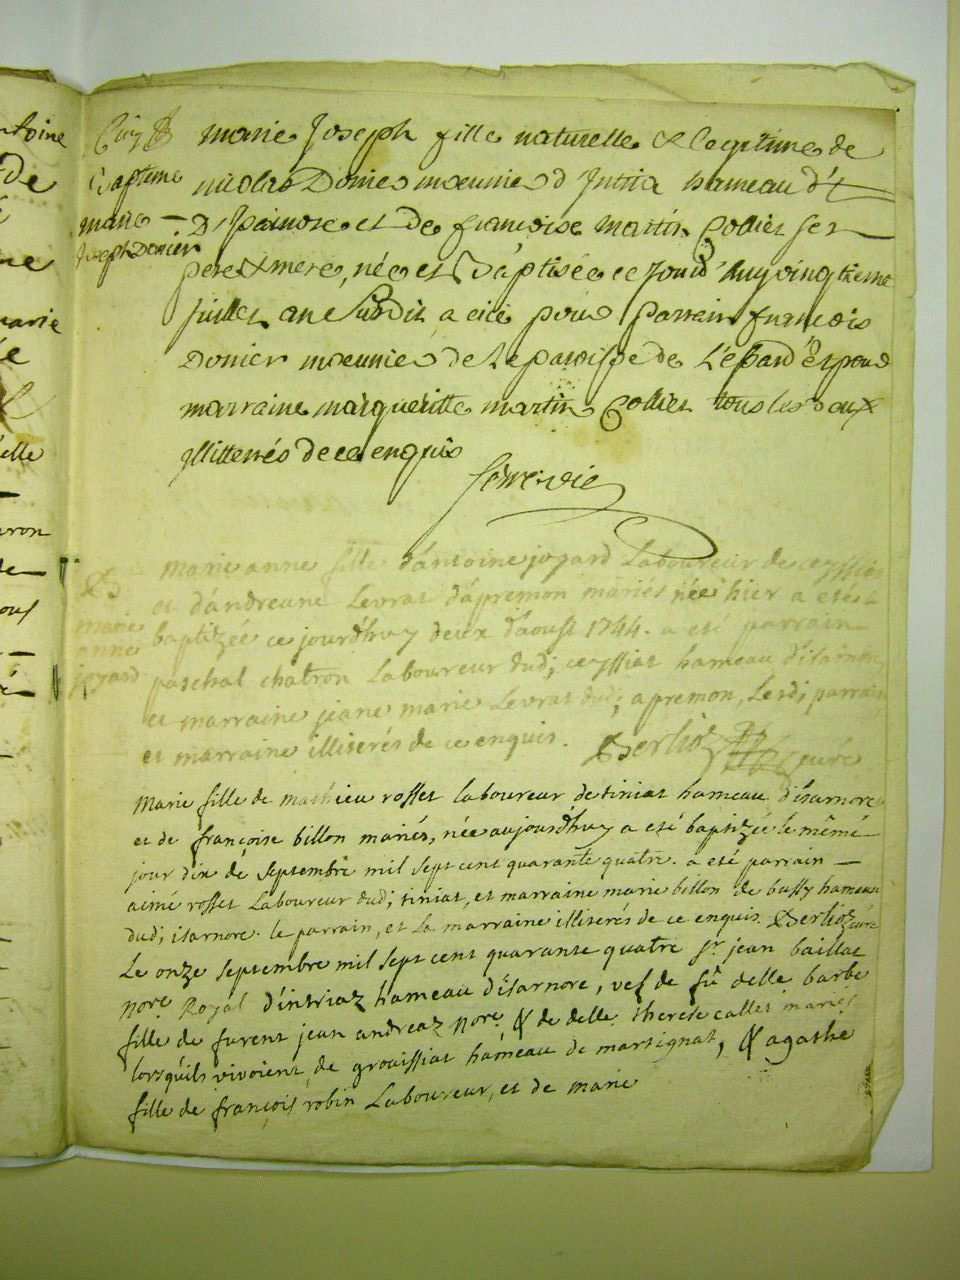 ntoine
de
ne
marie
elle
aron
Baptême
marie
Joseph Donier
marie Joseph fille naturelle & Legitime de
nicolas Donier meunier d'Intria hameau d'
D'Isarnore et de françoise martin Collier ses
peres & mere, née et Baptisée ce jourd'huy vingtieme
juillet an Susdit a eté pour parrain françois
Donier meunier de La paroisse de L'epard' et pour
marraine marguerittte martin Collier tous les deux
illitterés de ce enquis
B.
marie
anne
joyard
marie anne fille d'antoine joyard Laboureur de ceyssiat
et d'andreane Levrat d'apremon mariés née hier a eté
baptizée ce jourd'huy deux d'aoust 1744. a eté parrain
paschal chatron Laboureur dud; ceyssiat hameau d'isarnore
et marraine jeane marie Levrat dud; apremon, Lesd; parrain
et marraine illiterés de ce enquis. Berlioz curé
Marie fille de mathieu rosset laboureur de tiniat hameau d'isarnore
et de françoise billon mariés, née aujourd'huy a eté baptizée le même
jour dix de septembre mil sept cent quarante quatre. a eté parrain
aimé rosset Laboureur dud; tiniat, et marraine marie billon de bussy hameau
dud; isarnore. le parrain, et la marraine illiterés de ce enquis. Berlioz curé
Le onze septembre mil sept cent quarante quatre sr jean baillac
nore Royal d'intriaz hameau d'isarnore, vef de fü delle barbe
fille de furent jean andreaz nore & de delle therese callet mariés
lorsqu'ils vivoient, de groissiat hameau de martignat, & agathe
fille de françois robin Laboureur, et de marie